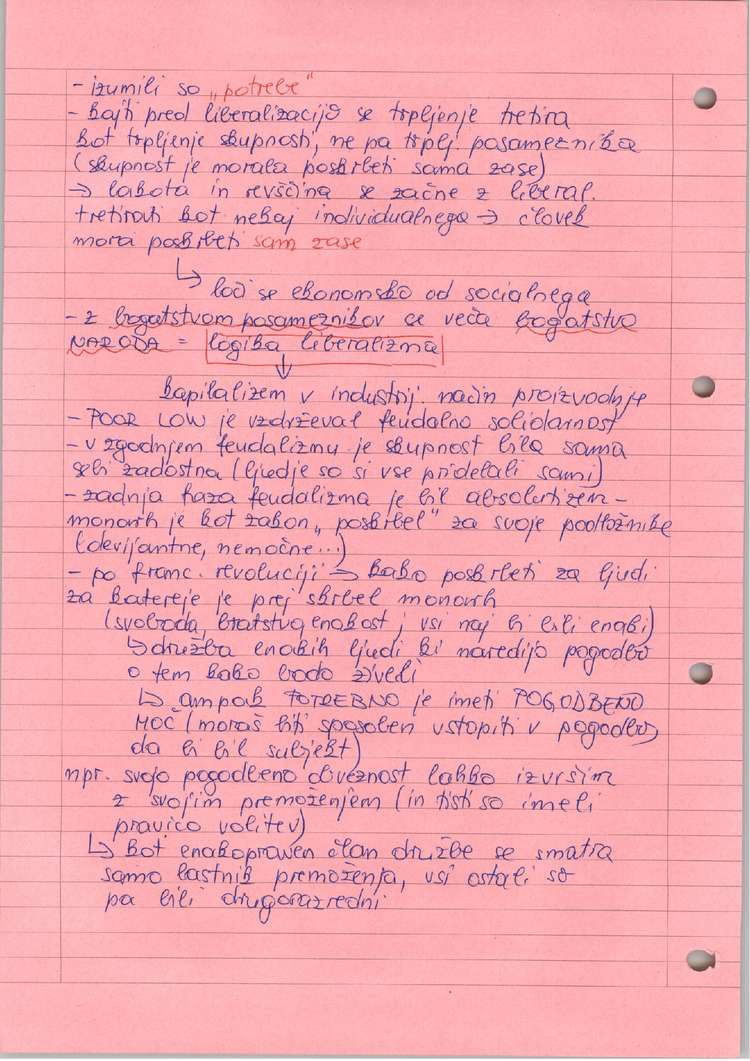 - izumili so „potrebe"
- kajti pred liberalizacijo se trpljenje tretira
kot trpljenje skupnosti, ne pa trplj. posameznika
(skupnost je morala poskrbeti sama zase)
→ lakota in revščina se začne z liberal.
tretirati kot nekaj individualnega → človek
mora poskrbeti sam zase
↳ loči se ekonomsko od socialnega
- z bogatstvom posameznikov se veča bogatstvo
NARODA = logika liberalizma
↓
kapitalizem v industrij. način proizvodnje
- POOR LOW je vzdrževal feudalno solidarnost
- v zgodnjem feudalizmu je skupnost bila sama
sebi zadostna (ljudje so si vse pridelali sami)
- zadnja faza feudalizma je bil absolutizem -
monarh je kot zakon „poskrbel" za svoje podložnike
(devijantne, nemočne...)
- po franc. revoluciji → kako poskrbeti za ljudi
za katereje je prej skrbel monarh
(svoboda, bratstvo, enakost; vsi naj bi bili enaki)
↳ družba enakih ljudi ki naredijo pogodbo
o tem kako bodo živeli
↳ ampak POTREBNO je imeti POGODBENO
MOČ (moraš biti sposoben vstopiti v pogodbo,
da bi bil subjekt)
npr. svojo pogodbeno obveznost lahko izvršim
z svojim premoženjem (in tisti so imeli
pravico volitev)
↳ kot enakopraven član družbe se smatra
samo lastnik premoženja, vsi ostali so
pa bili drugorazredni